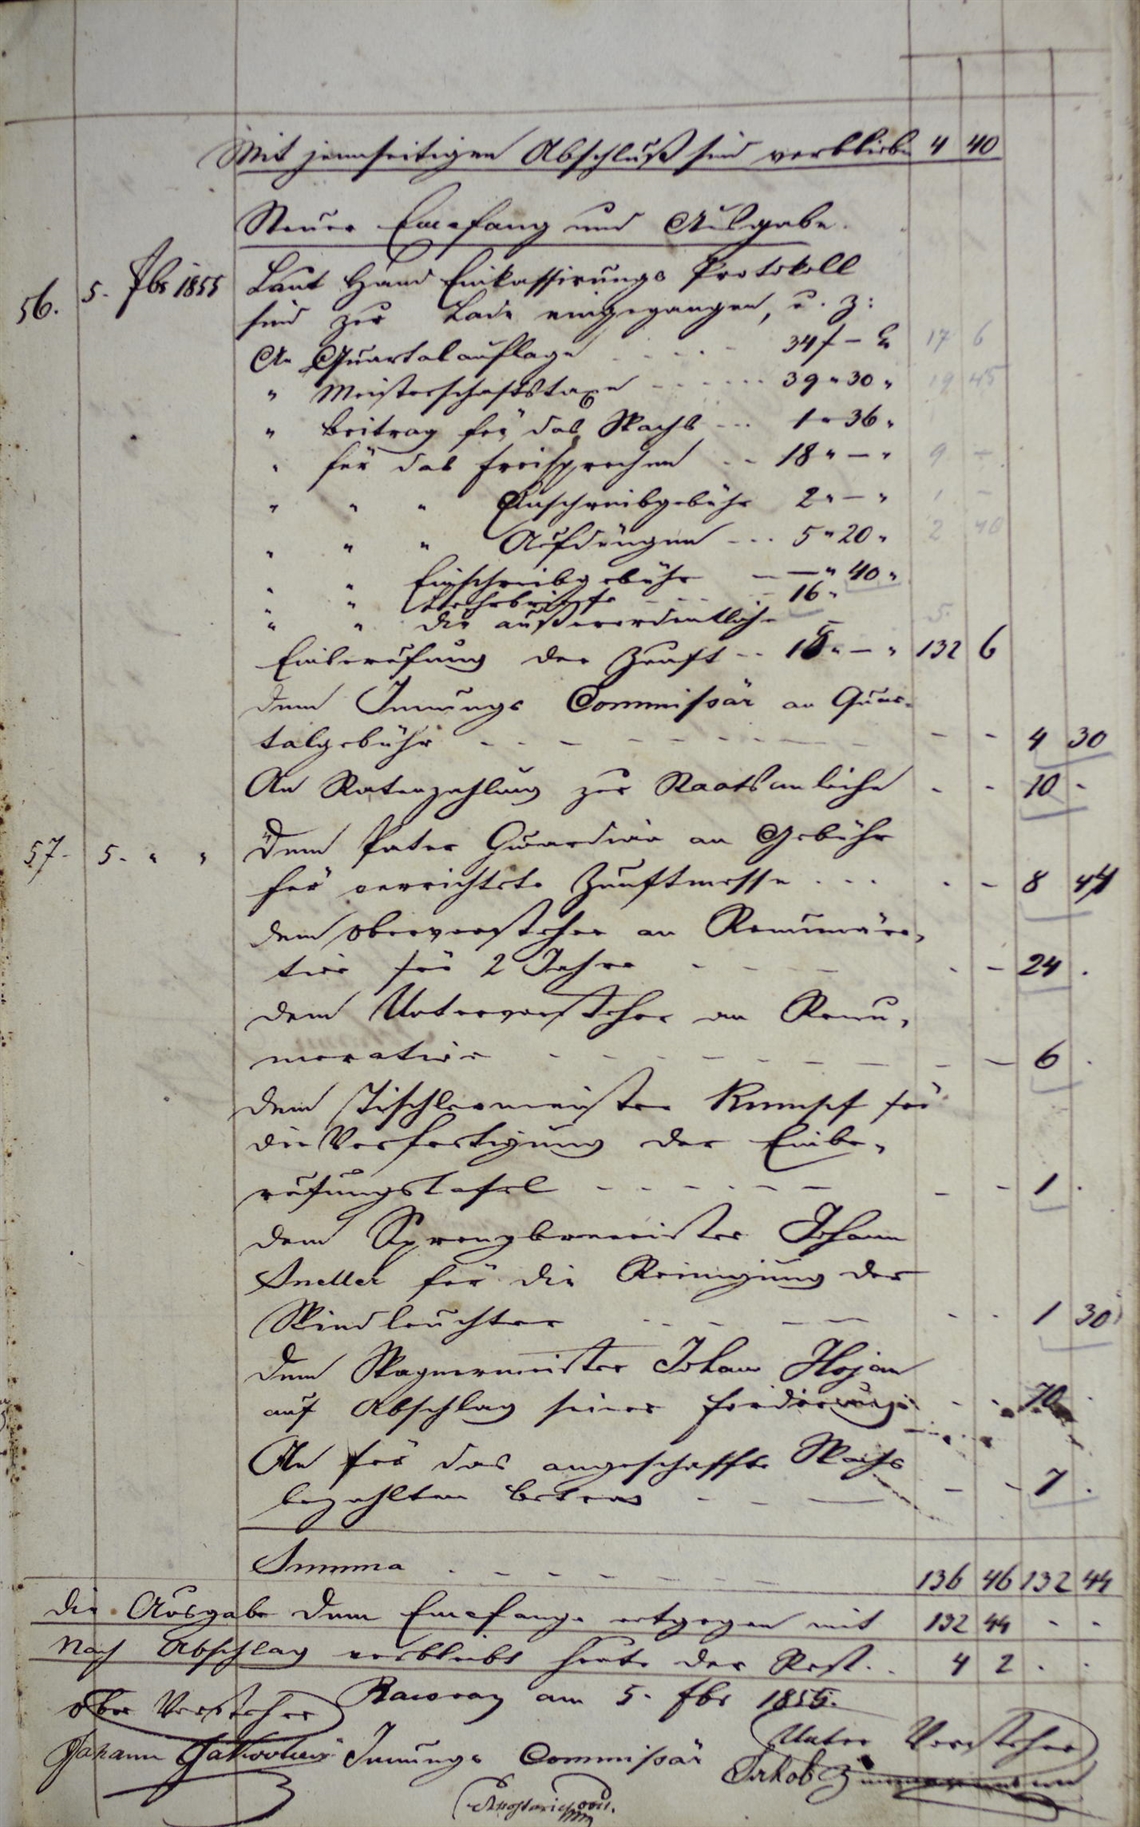 Mit jennseitigen Abschluß sind verblieben 4 40
Steuer Empfang und Ausgabe.
56. 5. fbr 1855 Laut Hand Einkassirungs Protokoll
sind zur Lade eingegangen, u. z:
An Quartalauflage 34 f – 17 6
" Meisterschaftstaxen 39 " 30 " 19 45
" beitrag für das Wachs 1 " 36 "
" für das freisprechen 18 " – " 9 –
" " " Einschreibgebühr 2 " – " 1 –
" " " Aufdüngen 5 " 20 " 2 40
" " Einschreibgebühr – " 40 "
" " Lehrbriefe 16 "
" " die außerordentliche 5
Einberufung der Zunft 15 " – " 132 6
dem Innungs Commissär an Quar-
talgebühr 4 30
An Ratenzahlung zur Staatsanleihe 10 -
57. 5. " " Dem Pater Guardian an Gebühr
für verrichtete Zunftmesse 8 44
dem Obervorsteher an Remunära-
tion für 2 Jahre 24 .
dem Untervorsteher an Remu-
neration 6 .
dem Tischlermeister Rumpf für
die Verfertigung der Einbe-
rufungstafel 1 .
dem Johann
Sneller für die Reinigung der
Windleuchter 1 30
dem Wagnermeister Johann Hojan
auf Abschlag seiner forderung 70 .
An für das angeschaffte Wachs
bezahlten betrag 7 .
Summa 136 46 132 44
die Ausgabe dem Empfange entgegen mit 132 44 - -
Nach Abschlag verbleibt heute der Rest 4 2 . .
am 5. fbr 1855.
Ober Vorsteher
Unter Vorsteher
Johann Innungs Commissär Jakob